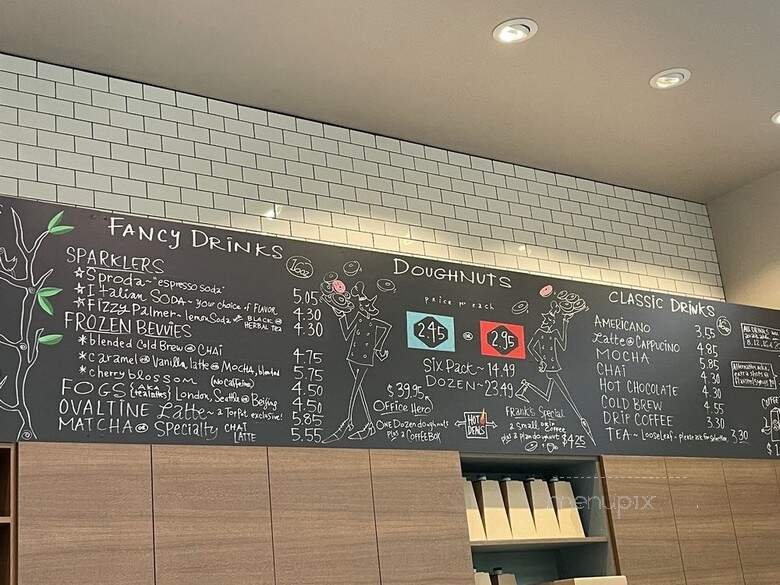 FANCY DRINKS
16oz
SPARKLERS
Sproda~ "espresso soda" 5.05
Italian SODA ~ your choice of FLAVOR 4.30
Fizzy Palmer~ lemon Soda BLACK or HERBAL Tea 4.30
FROZEN BEVVIES
blended Cold Brew or CHAI 4.75
caramel or Vanilla latte or Mocha, blended 5.75
cherry blossom (no Caffeine) 4.50
FOGS (AKA tealattes) London, Seattle or Beijing 4.50
OVALTINE Latte ~ a TopPot exclusive! 5.85
MATCHA or Specialty CHAI LATTE 5.55
DOUGHNUTS
price per each
2.45 or 2.95
SIX PACK ~ 14.49
DOZEN ~ 23.49
$39.95
OFFICE Hero
ONE Dozen doughnuts
plus a COFFEE BOX
HOT DEALS
Frank's Special
2 small coffee
plus a plain doughnut $4.25
CLASSIC DRINKS
AMERICANO 3.55
Latte or CAPPUCINO 4.85
MOCHA 5.85
CHAI 4.30
HOT CHOCOLATE 4.30
COLD BREW 4.55
DRIP COFFEE 3.30
TEA ~ Looseleaf - please ask for selection 3.30
menupix